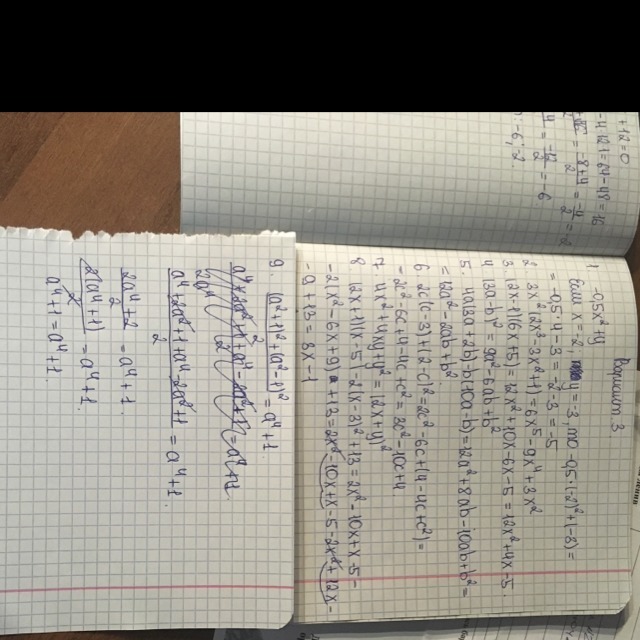 +12=0
=64-48=16
=-6
-6; 2
Вариант 3.
1. -0,5x²+y
Если x=2, y=-3, то -0,5·(-2)²+(-3)=
=-0,5·4-3=-2-3=-5
2. 3x²(2x³-3x²+1)=6x⁵-9x⁴+3x²
3. (2x-1)(6x+5)=12x²+10x-6x-5=12x²+4x-5
4. (3a-b)²=9a²-6ab+b²
5. 4a(3a+2b)-b(10a-b)=12a²+8ab-10ab+b²=
=12a²-2ab+b²
6. 2c(c-3)+(2-c)²=2c²-6c+(4-4c+c²)=
=2c²-6c+4-4c+c²=3c²-10c+4
7. 4x²+4xy+y²=(2x+y)²
8. (2x+1)(x-5)-2(x-3)²+13=2x²-10x+x-5-
-2(x²-6x+9)+13=2x²-10x+x-5-2x²+12x-
-9+13=3x-1
9. (a²+1)²+(a²-1)²/2=a⁴+1
a⁴+2a²+1+a⁴-2a²+1/2=a⁴+1.
2a⁴+2/2=a⁴+1.
2(a⁴+1)/2=a⁴+1.
a⁴+1=a⁴+1.